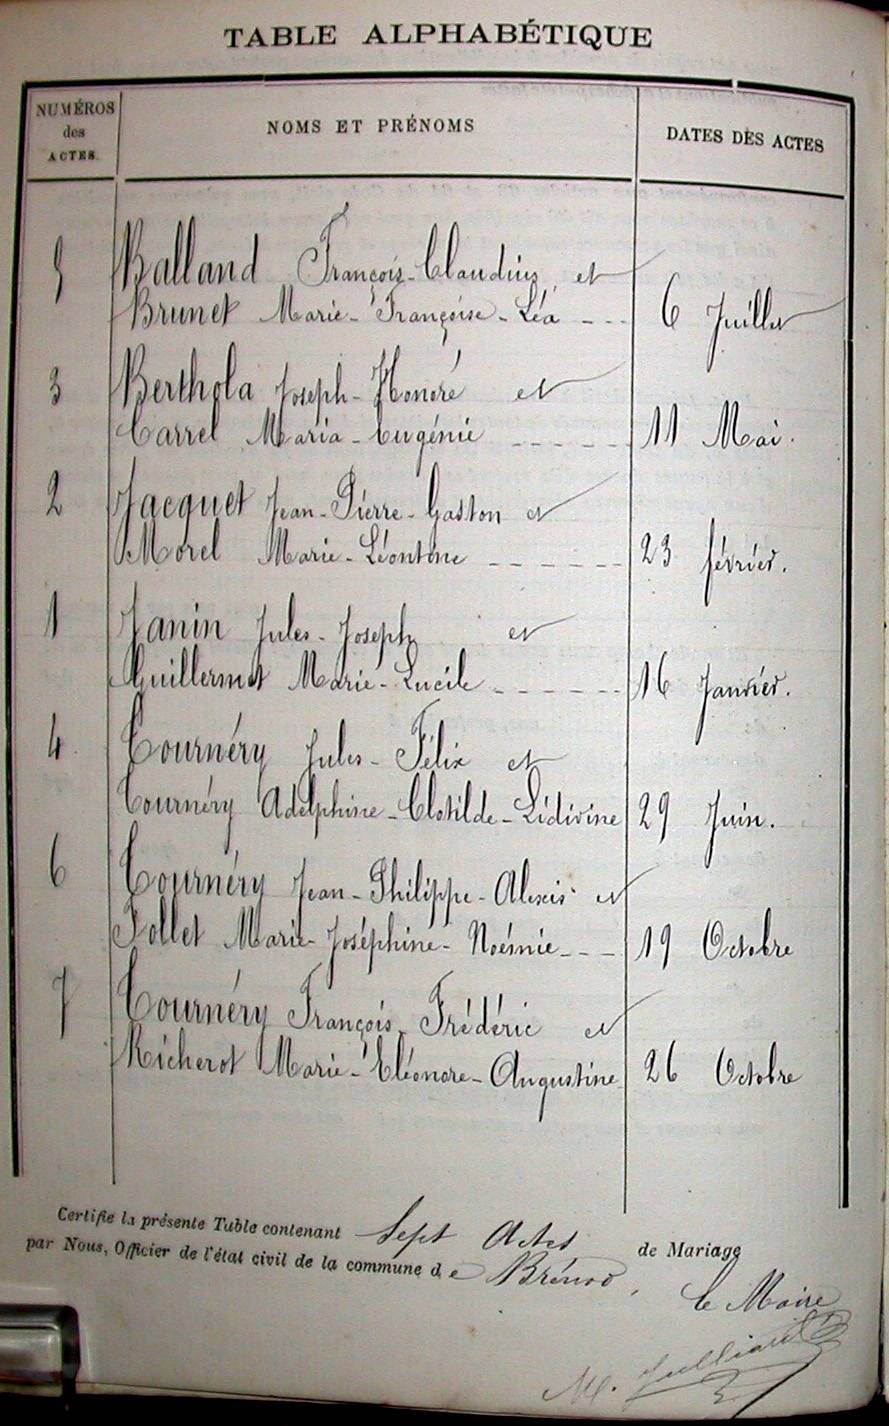 TABLE ALPHABÉTIQUE
NUMÉROS des ACTES. NOMS ET PRÉNOMS DATES DES ACTES
5 Balland François-Claudius et
Brunet Marie-Françoise-Léa 6 Juillet
3 Berthola Joseph-Honoré et
Carrel Maria-Eugénie 11 Mai.
2 Jacquet Jean-Pierre-Gaston et
Morel Marie-Léontine 23 février.
1 Janin Jules-Joseph et
Guillermet Marie-Lucile 16 Janvier.
4 Tournéry Jules-Félix et
Tournéry Adelphine-Clotilde-Lidivine 29 Juin.
6 Tournéry Jean-Philippe-Alexis et
Jollet Marie-Joséphine-Noémie 19 Octobre
7 Tournéry François-Frédéric et
Richerot Marie-Eléonore-Augustine 26 Octobre
Certifie la présente Table contenant Sept Actes de Mariage
par Nous, Officier de l'état civil de la commune de Brénod,
Le Maire
M. Julliard